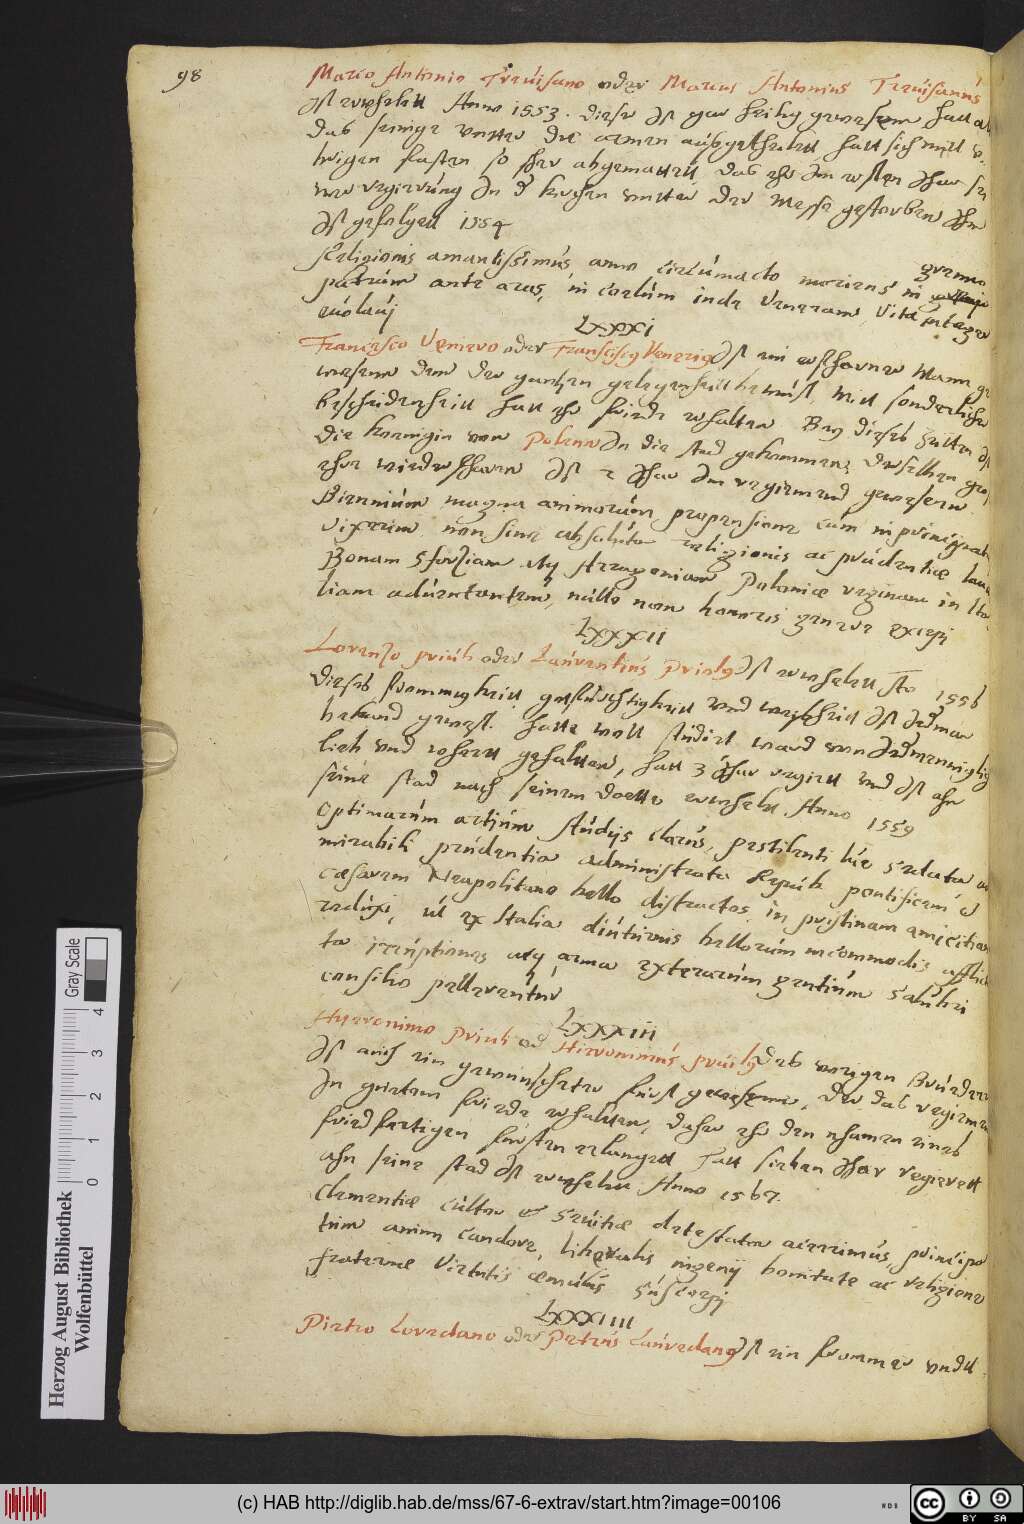 98
Marco Antonio Trevisano oder Marcus Antonius Trevisanus
Ist erwehlett Anno 1553. dieser Ist gar heilig gewesenn hatt al
das seinige untter die armen ausgetheilett, hatt sich mitt
hrigen fasten so sehr abgemattett das ehr Im ersten Jhar sei
ner regierung In d kirchen untter der Messe gestorben Ihm
Ist gefolgett 1554
Religionis amantissimus anno circumacto moriens in gremio
patrum ante aras, in coelum inde Veneram, vita integer
evolavi
LXXXI
Francesco Veniero oder Franciscus Venerius Ist ein erfharner Mann ge
wesenn dem der gantzen gelegenheitt bewust, Mitt sonderlicher
bescheidenheitt hatt ehr friede erhalten. Bey dieses Zeitten Ist
die koenigin von Polenn In die stad gekommen, derselben gros
ehre wiederfharen Ist 2 Jhar Im regiment gewesenn.
Biennium magna animorum propensione cum in principatu
vixerim, non sine absoluta religionis ac prudentiae laude
Bonam Sfortiam atq Arragoniam Poloniae reginam in Ita
liam adventantem, nullo non honoris genere excepi
LXXXII
Lorenzo priuli oder Laurentius Priulus Ist erwehlett Ao 1556
Dieses frommigkeitt, gotsfurchtigkeitt und weisheitt Ist Jederman
bekand gewest. hatte woll studirt ward von Jedermenniglich
lieb und wehrtt gehaltten, hatt 3 Jhar regirtt und Ist ahn
seine stad nach seinem doette erwehlett Anno 1559
Optimarum artium studijs clarus, pestilenti lue sedata
mirabili prudentia administrata Repub. pontificem &
caesarem Neapolitano bello distractos in pristinam amicitiam
reduxi, ut ex Italia diuturnis bellorum incommodis afflic
ta irruptiones atq arma exterarum gentium salubri
consilio pellerentur
LXXXIII
Hyeronimo priuli od Hieronimus priulus des vorigen Bruder
Ist auch ein gewunschter furst gewesenn, der das regiment
In guettem friede erhaltten, daher ehr den nhamen eines
friedfertigen fursten erlangett hatt sieben Jhar regierett
ahn seine stad Ist erwehlett Anno 1567.
Clementiae cultor & Sevitiae detestator acerrimus, principa
tum animi candore, liberalis ingenij bonitate ac religione
fraternae virtutis aemulus suscepi
LXXXIIII
Pietro Loredano oder Petrus Lauredanus Ist ein frommer undtt
Herzog August Bibliothek
Wolfenbüttel
0 1 2 3 4
Gray Scale
(c) HAB http://diglib.hab.de/mss/67-6-extrav/start.htm?image=00106
WDB
cc BY SA